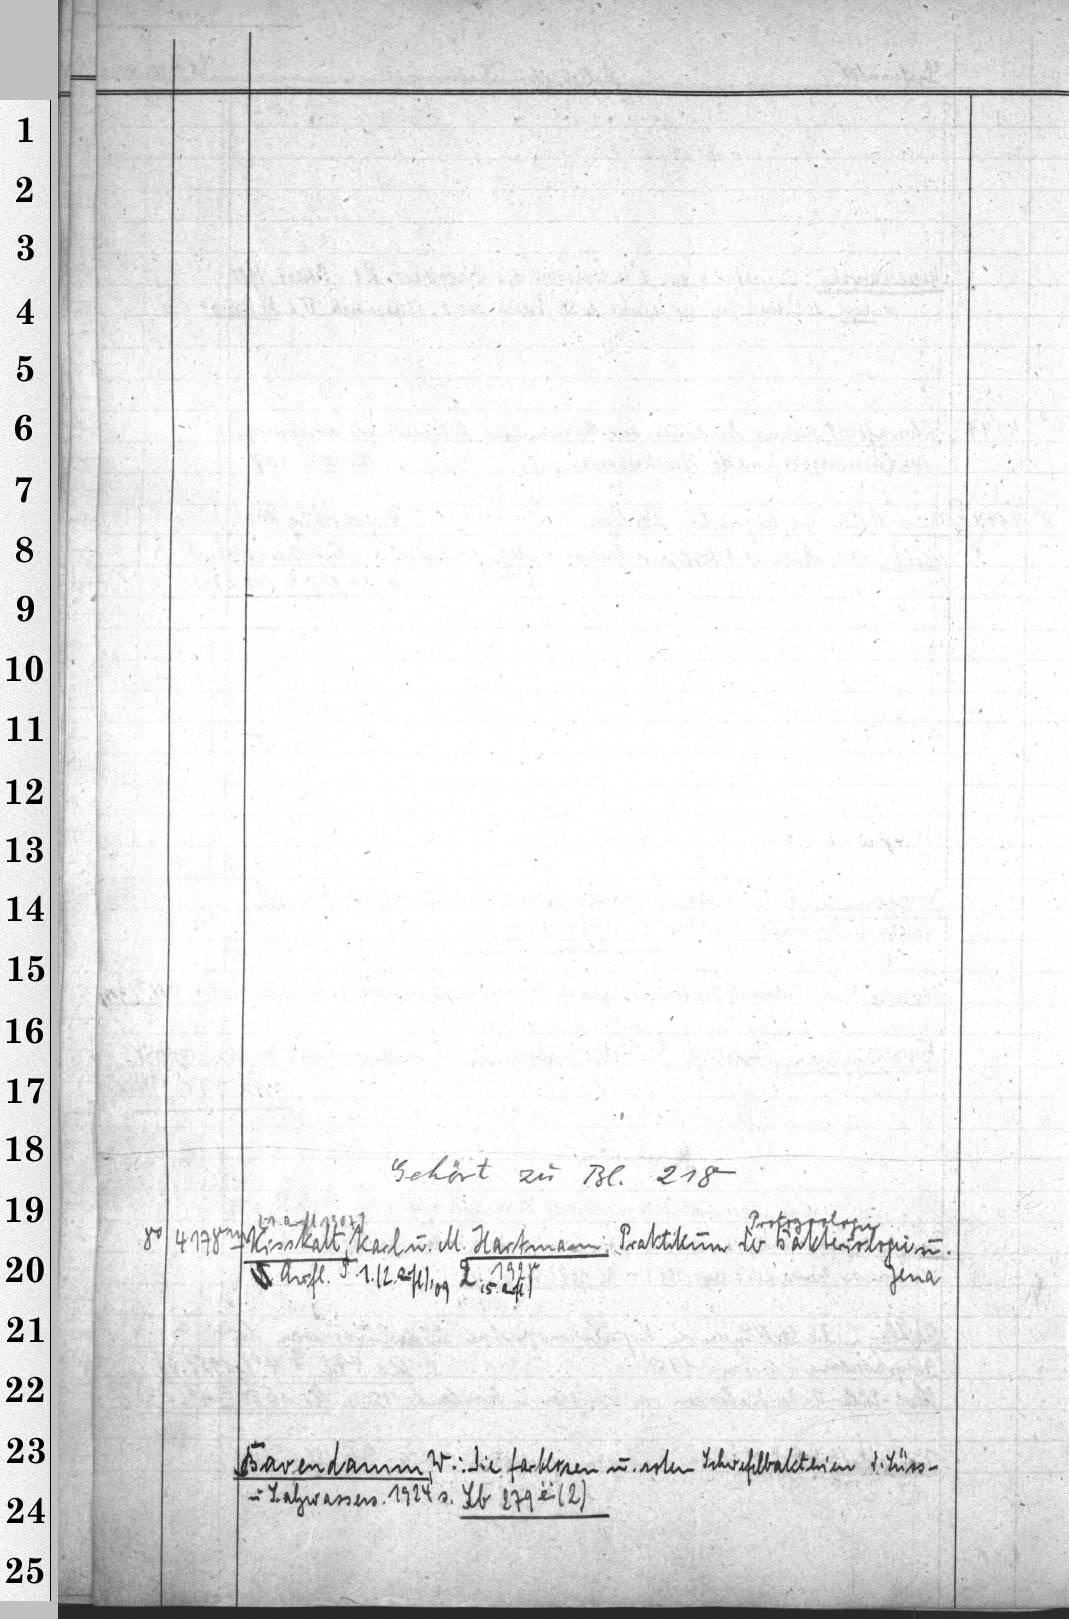 1
2
3
4
5
6
7
8
9
10
11
12
13
14
15
16
17
18
Gehört zu Bl. 218
19
[1. Aufl. 1907]
Protozoologie
8° 4178 Kisskalt, Karl u. M. Hartmann: Praktikum der Bakteriologie u.
20
Aufl. 1. (2. Aufl.), 09 2. 1928 Jena
(5. Aufl)
21
22
23
Bavendamm, W.: Die farblosen u. roten Schwefelbakterien d. Süss-
u Salzwassers. 1924 s. Lb 279 (2)
24
25